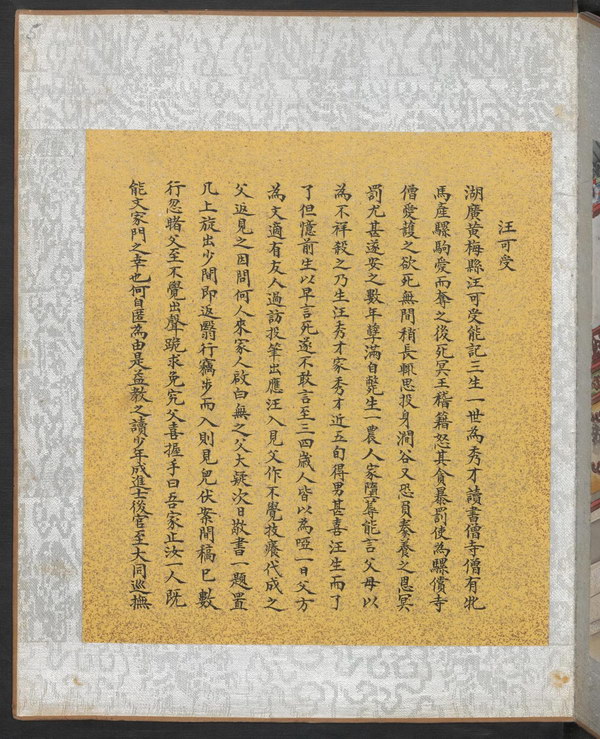 汪可受
湖廣黃梅縣汪可受能記三生一世為秀才讀書僧寺僧有牝
馬產騾駒愛而奪之後死冥王稽籍怒其貪暴罰使為騾償寺
僧僧愛護之欲死無間稍長輒思投身澗谷又恐負豢養之恩冥
罰尤甚遂安之數年孽滿自斃生一農人家墮蓐能言父母以
為不祥殺之乃生汪秀才家秀才近五旬得男甚喜汪生而了
了但憶前生以早言死遂不敢言至三四歲人皆以為啞一日父方
為文適有友人過訪投筆出應汪入見父作不覺技癢代成之
父返見之因問何人來家人啟白無之父大疑次日故書一題置
几上旋出少間即返翳行竊步而入則見兒伏案間稿已數
行忽睹父至不覺出聲跪求免究父喜握手曰吾家止汝一人既
能文家門之幸也何自匿為由是益教之讀少年成進士後官至大同巡撫